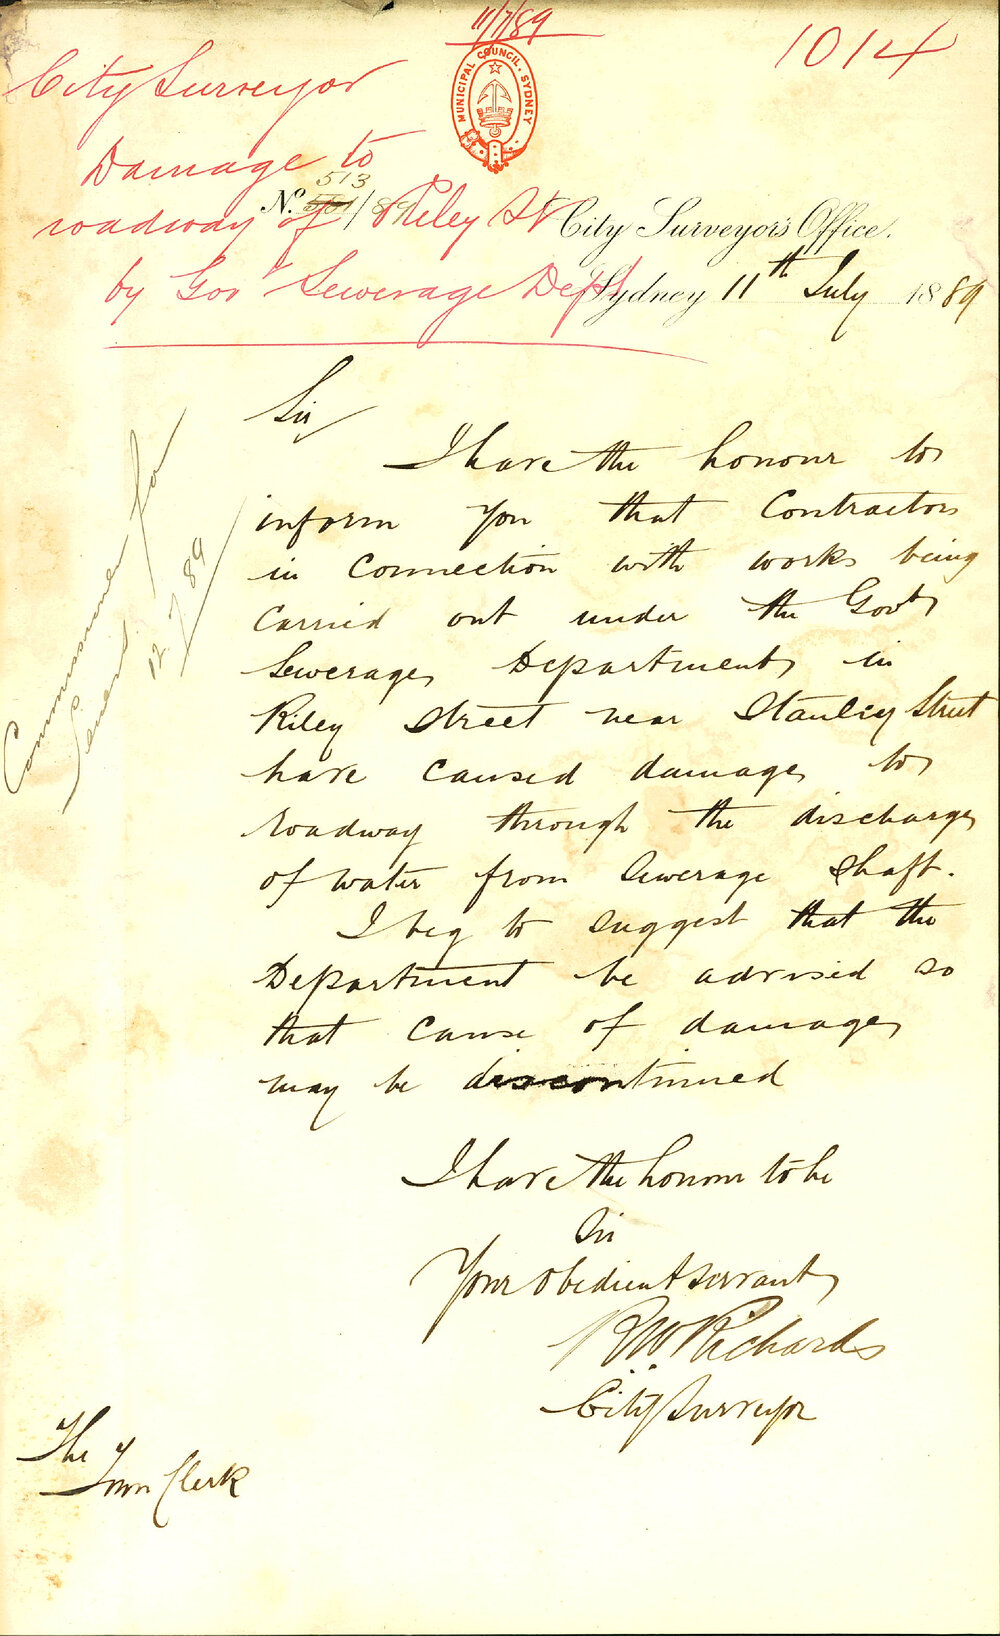 11/7/89
1014
MUNICIPAL COUNCIL. SYDNEY
City Surveyor
Damage to
roadway of Riley St
by Govt Sewerage Dept
No. 513/89
City Surveyor's Office.
Sydney 11th July 1889
Sir
I have the honour to
inform you that Contractors
in connection with works being
carried out under the Govt
Sewerage Department in
Riley Street near Stanley Street
have caused damage to
roadway through the discharge
of water from Sewerage Shaft.
I beg to suggest that the
Department be advised so
that cause of damage
may be discontinued
I have the honour to be
Sir
Your obedient servant
R W Richards
City Surveyor
The
Town Clerk
Commissioner for
Sewers
12.7.89